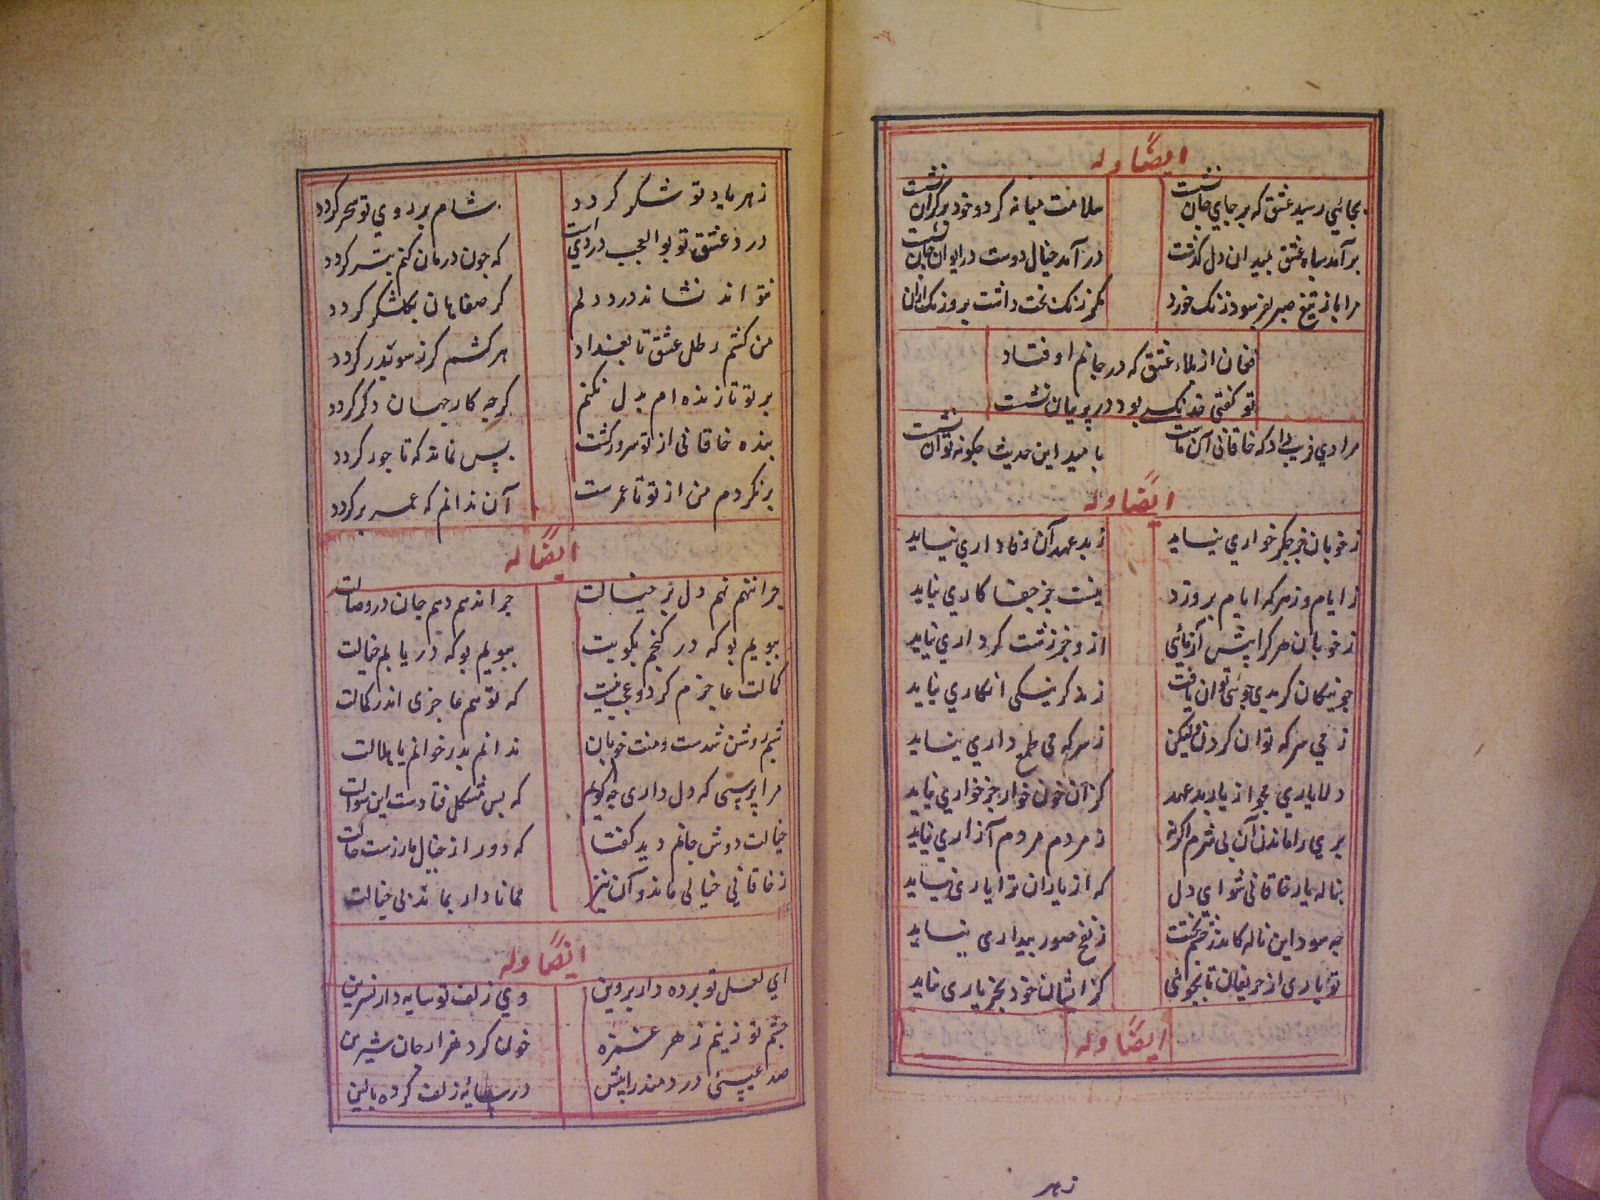 ایضاً وله
بجائی رسید عشق که بر جای جان نشست
سلامت میانه کرد و خود بر کران نشست
برآمد سپاه عشق بمیدان دل گذشت
درآمد خیال دوست در ایوان جان نشست
مرا باز تیغ صبر بفرسود زنگ خورد
مگر زنگ بخت داشت بر و زنگ ازان
فغان از بلاء عشق که در جانم اوفتاد
تو گفتی خدنگ بود در پرنیان نشست
مرا دی فریب داد که خاقانی آن ماست
بامید این حدیث چگونه توان نشست
ایضاً وله
ز خوبان جز جگر خواری نیاید
ز بد عهد آن وفاداری نیاید
ز ایام و ز هر که ایام پرورد
بنسبت جز جفا کاری نیاید
ز خوبان هر کرا پیش آزمائی
ازو جز زشت کرداری نیاید
چو نیکان گر بدی جوئی توان یافت
ز بد گر نیکی انگاری نیاید
ز می سرکه توان کردن ولیکن
ز سرکه می طمع داری نیاید
دلا یاری مجو از یار بد عهد
کز آن خون خوار جز خواری نیاید
پری را ماند آن بی شرم اگر نه
ز مردم مردم آزاری نیاید
بناله یار خاقانی شو ای دل
که از یاران ترا یاری نیاید
چه سود این ناله کاندر چشم بختت
ز نفخ صور بیداری نیاید
تو یاری از حریفان تا بجوئی
کز ایشان خود بجز یاری نیاید
ایضاً وله
زهر
زهر با یاد تو شکر گردد
شام بر روی تو سحر گردد
درد عشق تو بوالعجب دردیست
که چون درمان کنم بتر گردد
نتواند نشاند درد دلم
گر صفاهان بگلشکر گردد
من کشم رطل عشق تا بغداد
هر کشم کز سو بتدر گردد
بر تو تا زنده ام بدل نکنم
گرچه کار جهان دگر گردد
بنده خاقانی از تو سرور گشت
بس نماند که تاجور گردد
برنگردم من از تو تا عمرست
آن ندانم که عمر بر گردد
ایضاً له
چرا ننهم نهم دل بر خیالت
چرا ندهم دهم جان در وصالت
بپویم بو که در گنجم بکویت
بجویم بو که در یابم خیالت
کمالت عاجزم کرد و عجب نیست
که تو هم عاجزی اندر کمالت
شبم روشن شدست و منت خوبان
ندانم بدر خوانم یا هلالت
مرا پرسی که دل داری چه گویم
که بس مشکل فتادست این سوالت
خیالت دوش جانم دید گفتا
که دور از خیال مارزست حالت
ز خاقانی خیالی ماند و آن نیز
ممانا دار بماند بی خیالت
ایضاً وله
ای لعل تو پرده دار پروین
وی زلف تو سایه دار نسرین
چشم تو ز نیم زهر غمزه
خون کرد هزار جان شیرین
صد عیسی دردمند را پیش
در سایه زلف کرده بالین